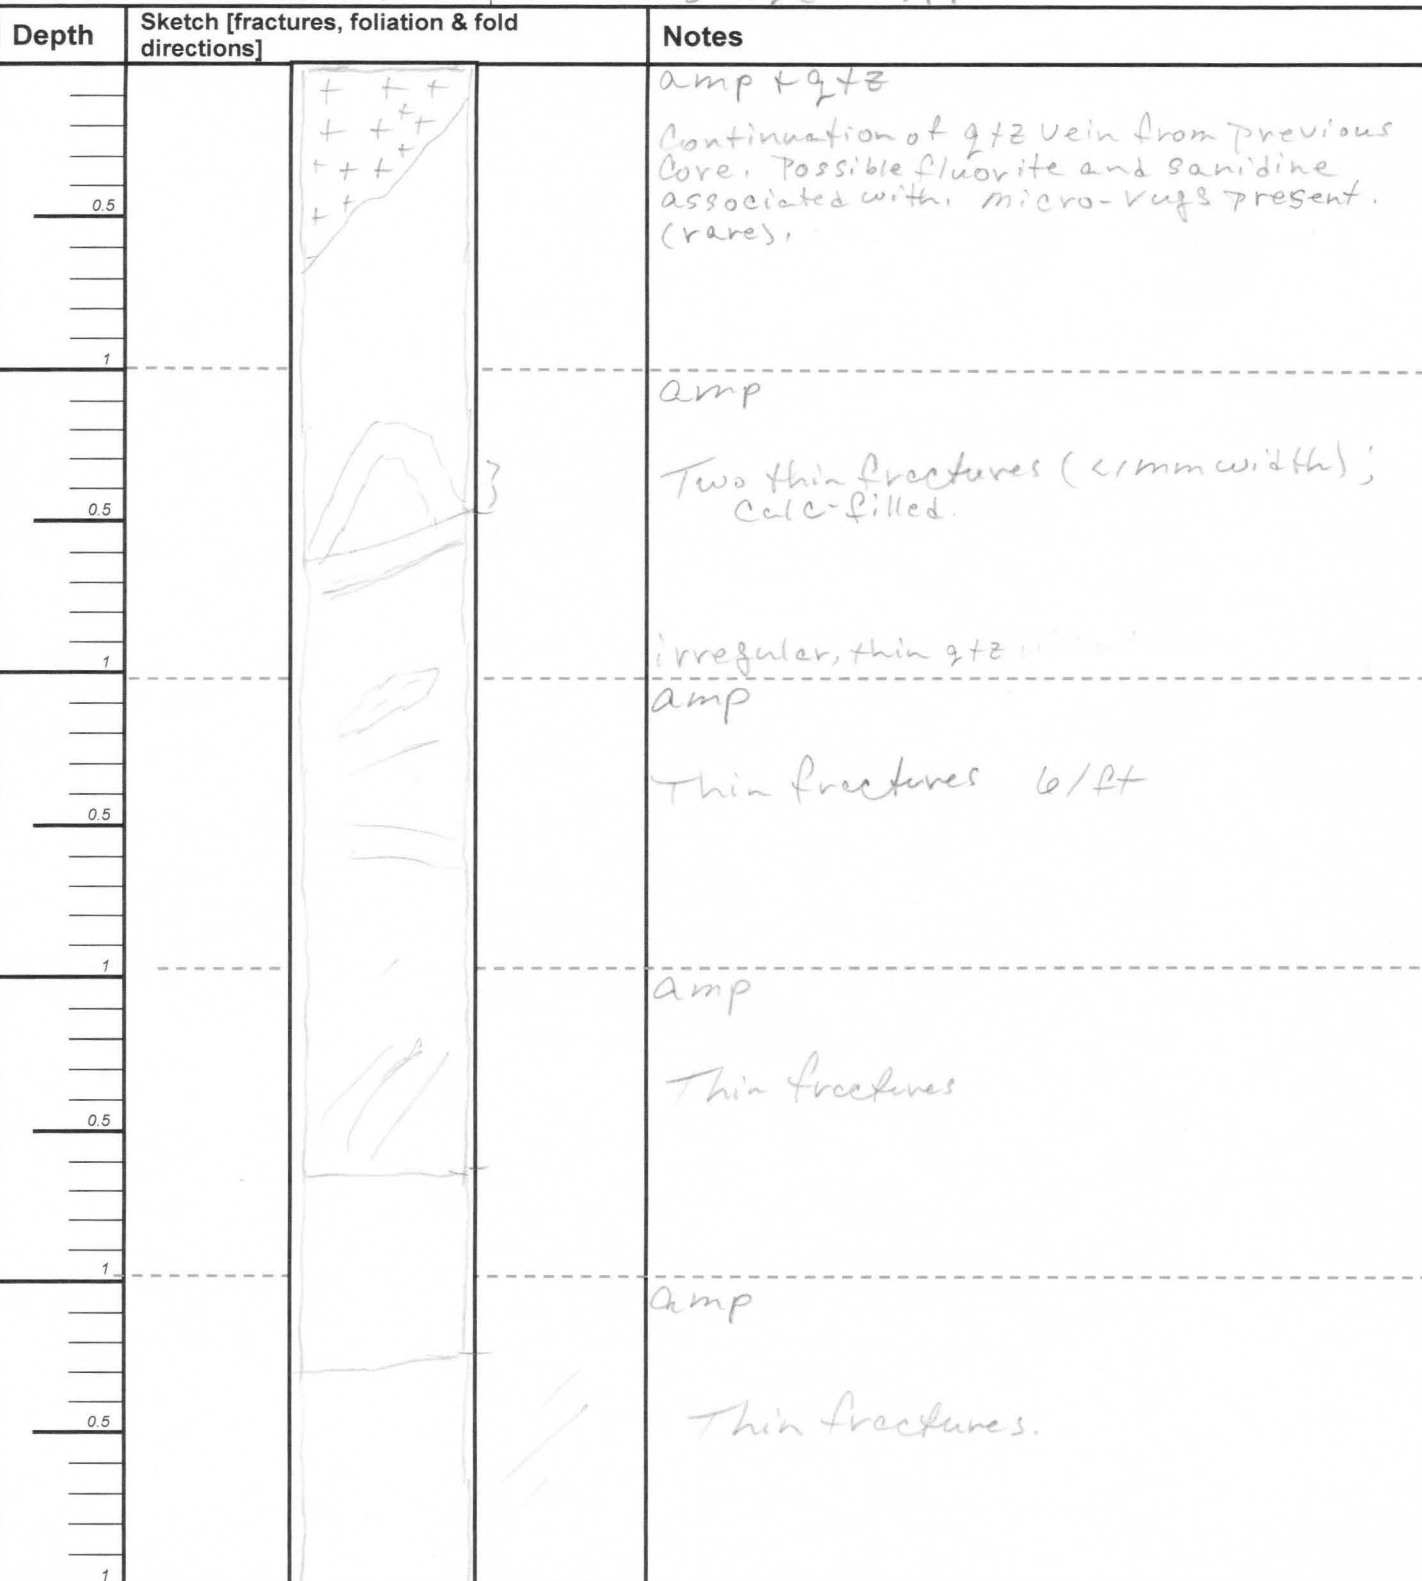 Depth
Sketch [fractures, foliation & fold
directions]
Notes
amp + qtz
Continuation of qtz vein from previous
Core. Possible fluorite and sanidine
associated with. micro-vugs present.
(rare).
0.5
1
amp
Two thin fractures (<1mm width);
Calc-filled.
0.5
irregular, thin qtz
1
amp
Thin fractures 6/ft
0.5
1
amp
Thin fractures
0.5
1
amp
Thin fractures.
0.5
1